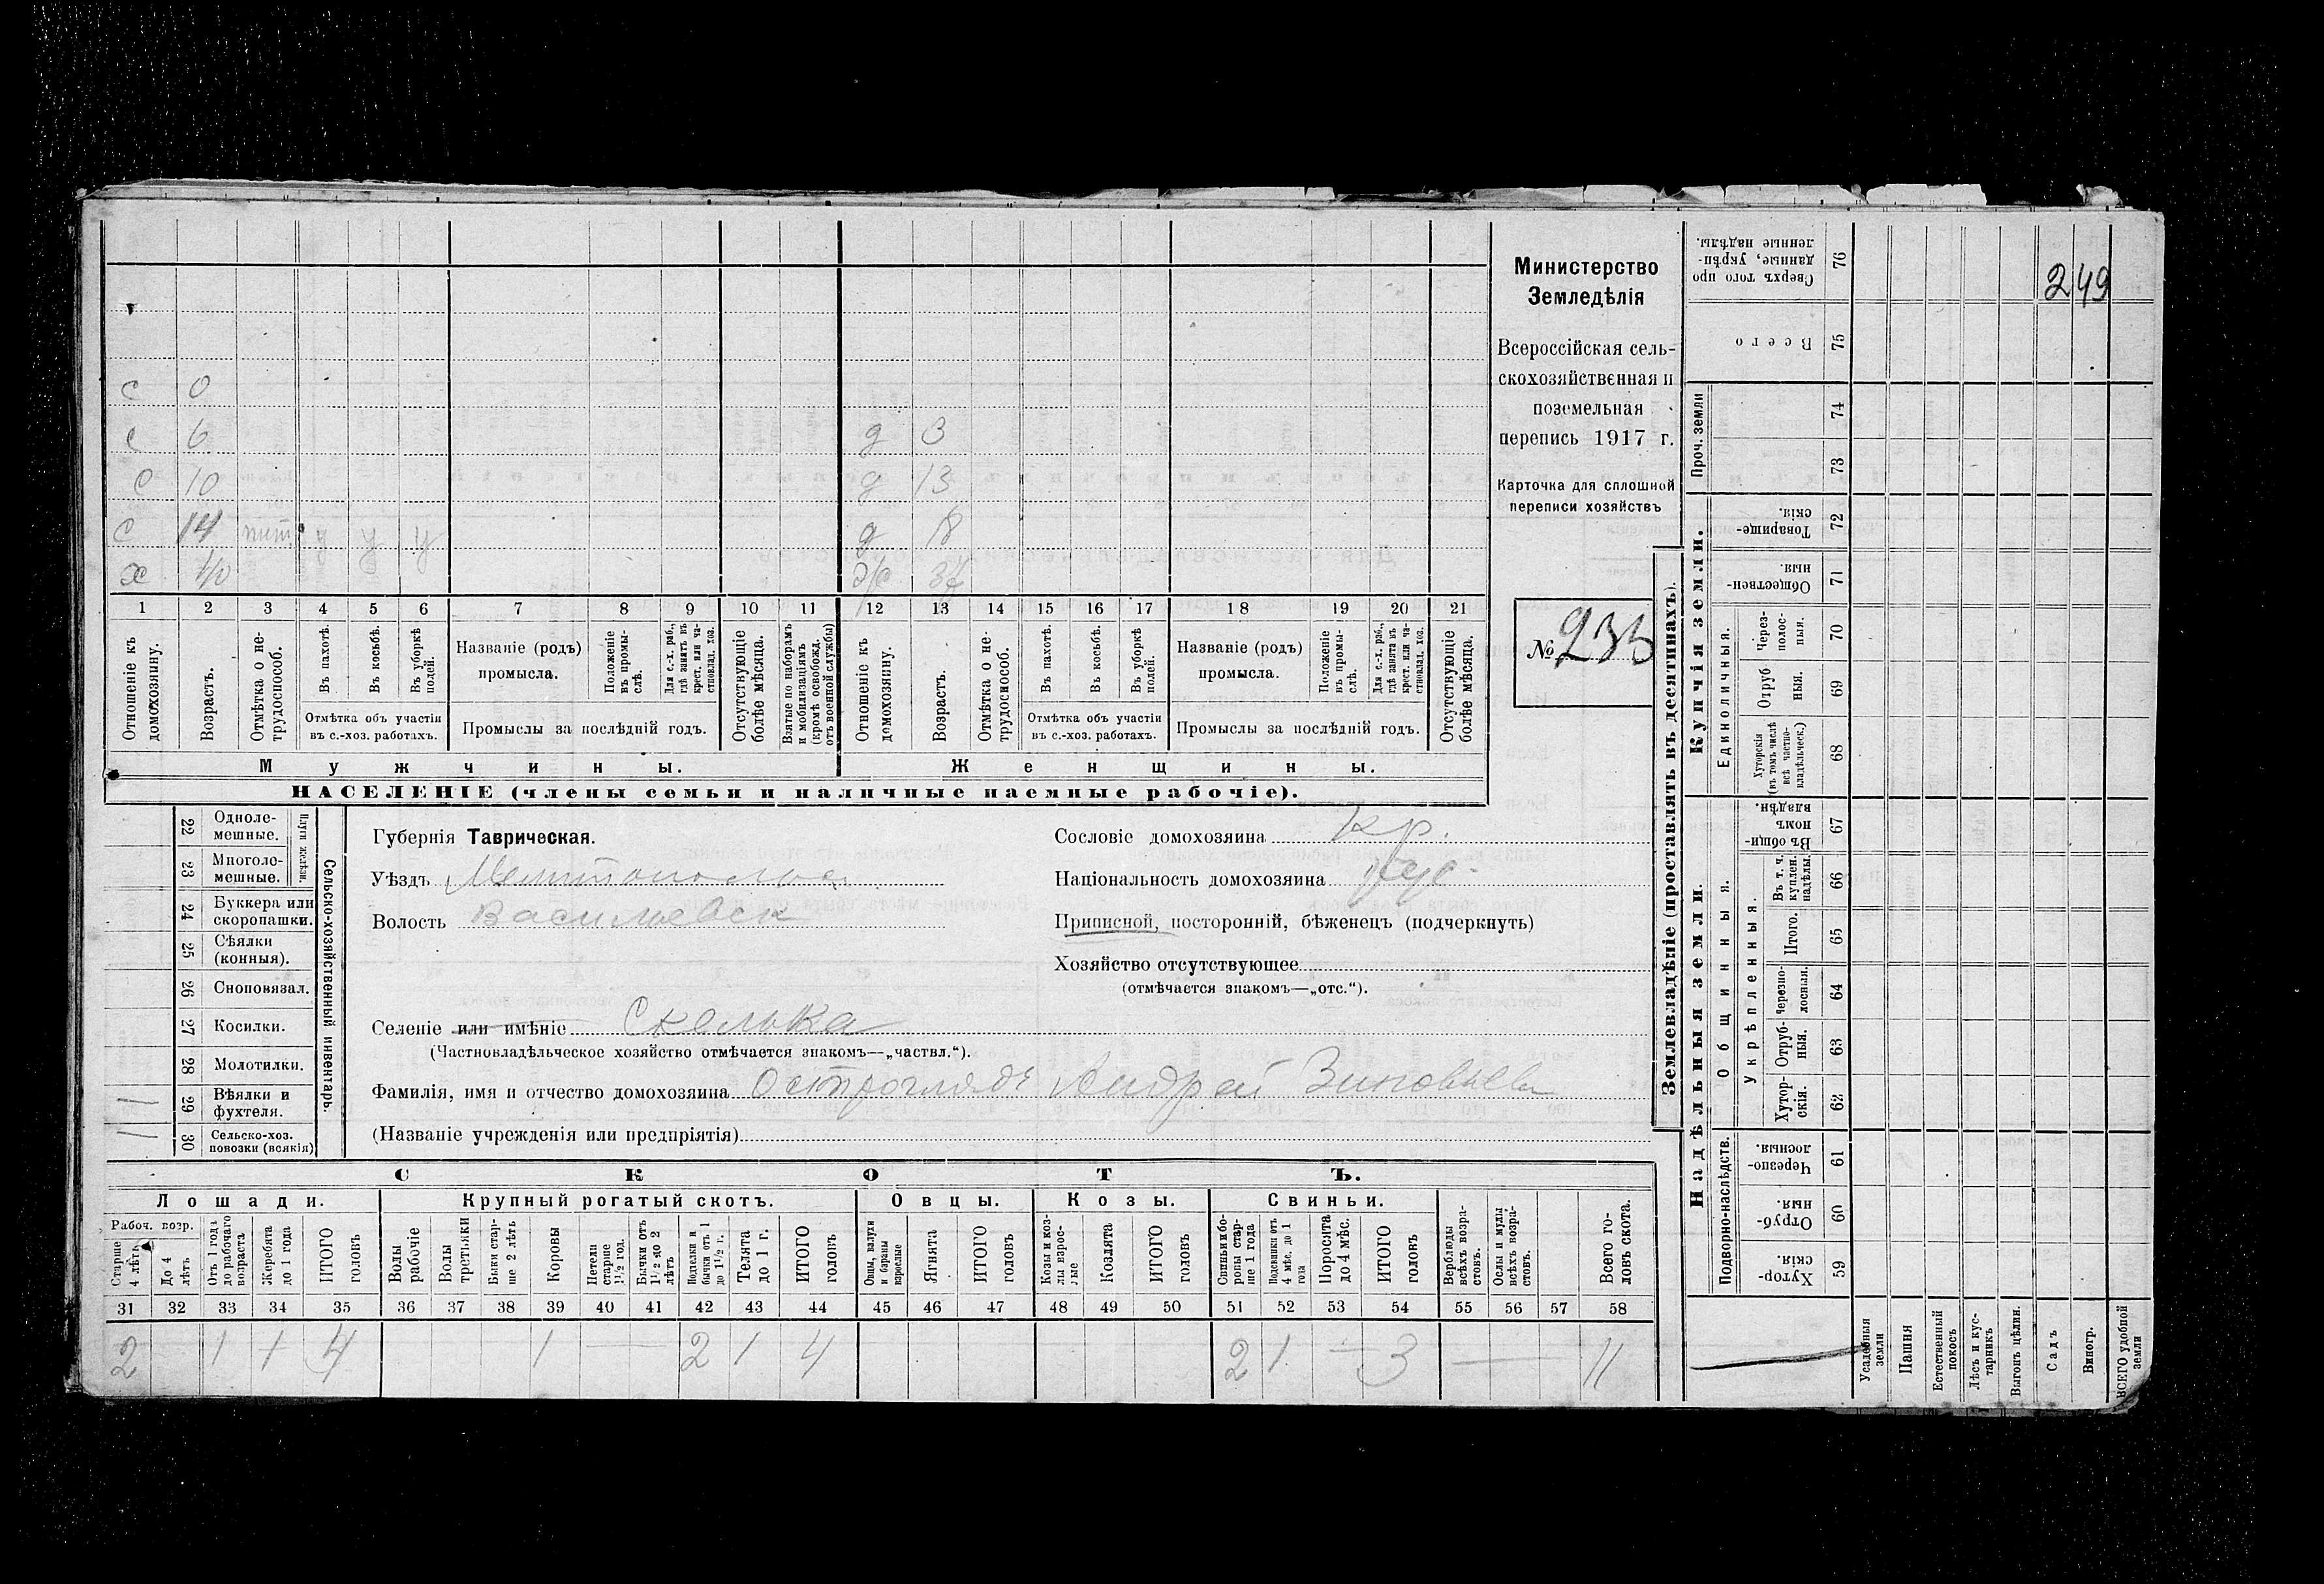 с 0
с 6 д 3
с 10 д 13
с 14 у у у д 18
х 40
1 2 3 4 5 6 7 8 9 10 11 12 13 14 15 16 17 18 19 20 21
Отношеніе къ домохозяину.
Возрастъ.
Отмѣтка о не-трудоспособ.
Въ пахотѣ.
Въ косьбѣ.
Въ уборкѣ полей.
Отмѣтка объ участіи
въ с.-хоз. работахъ.
Названіе (родъ)
промысла.
Положеніе въ промы-слѣ.
Для с.-х. раб., гдѣ занятъ въ крест. или ча-стновлад. хоз.
Промыслы за послѣдній годъ.
Отсутствующіе болѣе мѣсяца.
Взятые по наборамъ и мобилизаціямъ (кромѣ освобожд. отъ военной службы)
Отношеніе къ домохозяину.
Возрастъ.
Отмѣтка о не-трудоспособ.
Въ пахотѣ.
Въ косьбѣ.
Въ уборкѣ полей.
Отмѣтка объ участіи
въ с.-хоз. работахъ.
Названіе (родъ)
промысла.
Положеніе въ промы-слѣ.
Для с.-х. раб., гдѣ занята въ крест. или ча-стновлад. хоз.
Промыслы за послѣдній годъ.
Отсутствующіе болѣе мѣсяца.
Мужчины. Женщины.
НАСЕЛЕНІЕ (члены семьи и наличные наемные рабочіе).
Министерство
Земледѣлія
Всероссійская сель-
скохозяйственная и
поземельная
перепись 1917 г.
Карточка для сплошной
переписи хозяйствъ
№ 235
22 Одноле-мешные.
23 Многоле-мешные.
Плуги желѣзн.
24 Буккера или скоропашки.
25 Сѣялки (конныя).
26 Сноповязал.
27 Косилки.
28 Молотилки.
29 Вѣялки и фухтеля.
30 Сельско-хоз. повозки (всякія)
Сельско-хозяйственный инвентарь.
Губернія Таврическая.
Уѣздъ Мелитопольск
Волость Васильевск
Селеніе или имѣніе Скелька
(Частновладѣльческое хозяйство отмѣчается знакомъ—„частвл.“).
Фамилія, имя и отчество домохозяина Остроглядъ Андрей Зиновьев
(Названіе учрежденія или предпріятія)
Сословіе домохозяина кр.
Національность домохозяина рус.
Приписной, посторонній, бѣженецъ (подчеркнуть)
Хозяйство отсутствующее
(отмѣчается знакомъ—„отс.“).
СКОТЪ.
Лошади. Крупный рогатый скотъ. Овцы. Козы. Свиньи.
Рабоч. возр.
Старше 4 лѣтъ
До 4 лѣтъ
Отъ 1 года до рабочаго возраста
Жеребята до 1 года
ИТОГО головъ
Волы рабочіе
Волы третьяки
Быки стар-ше 2 лѣтъ
Коровы
Нетели старше 1 1/2 год.
Бычки отъ 1 1/2 до 2 лѣтъ
Подтелки и бычки отъ 1 до 1 1/2 г.
Телята до 1 г.
ИТОГО головъ
Овцы, валухи и бараны взрослые
Ягнята
ИТОГО головъ
Козы и коз-лы взрос-лые
Козлята
ИТОГО головъ
Свиньи и бо-ровы стар-ше 1 года
Подсвинки отъ 4 мѣс. до 1 года
Поросята до 4 мѣс.
ИТОГО головъ
Верблюды всѣхъ возра-стовъ.
Ослы и мулы всѣхъ возра-стовъ.
Всего го-ловъ скота.
31 32 33 34 35 36 37 38 39 40 41 42 43 44 45 46 47 48 49 50 51 52 53 54 55 56 57 58
2 1 1 4 1 — 2 1 4 2 1 — 3 — 11
Землевладѣніе (проставлять въ десятинахъ).
Купчія земли.
Надѣльныя земли.
Сверхъ того про данные, укрѣп-ленные надѣлы. 76
249
Всего 75
Проч. земли
74
73
Товарище-скія. 72
Обществен-ныя. 71
Единоличныя.
Через-полос-ныя. 70
Отруб ныя. 69
Хуторскія (въ томъ числѣ всѣ частно-владѣльческ.) 68
Общинныя.
Въ общи-номъ владѣн. 67
Укрѣпленныя.
Въ т. ч. куплен. надѣлы. 66
Итого. 65
Черезпо-лосныя. 64
Отруб-ныя. 63
Хутор-скія. 62
Подворно-наслѣдств.
Черезпо-лосныя. 61
Отруб-ныя. 60
Хутор-скія. 59
Усадебныя земли
Пашня
Естественный покосъ
Лѣсъ и кус-тарникъ
Выгонъ цѣлин.
Садъ
Виногр.
ВСЕГО удобной земли